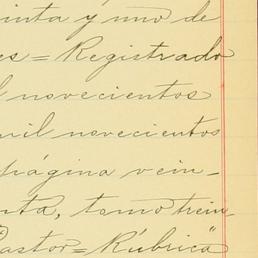 inta y uno de
es = Registrado
l novecientos
mil novecientos
página vein-
nta, tomo trein
Pastor = Rúbrica"